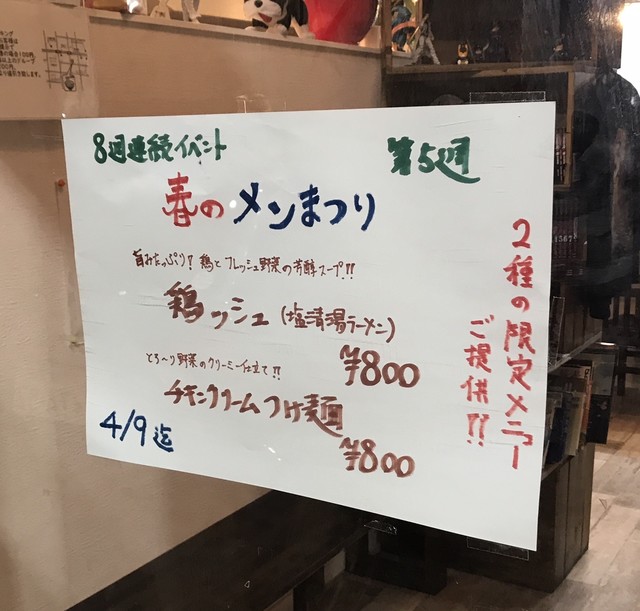 8週連続イベント
第5週
春のメンまつり
旨みたっぷり!鶏とフレッシュ野菜の芳醇スープ!!
鶏ッシュ(塩清湯ラーメン)
¥800
とろ〜り野菜のクリーミー仕立て!!
チキンクリームつけ麺
¥800
4/9迄
2種の限定メニュー
ご提供!!